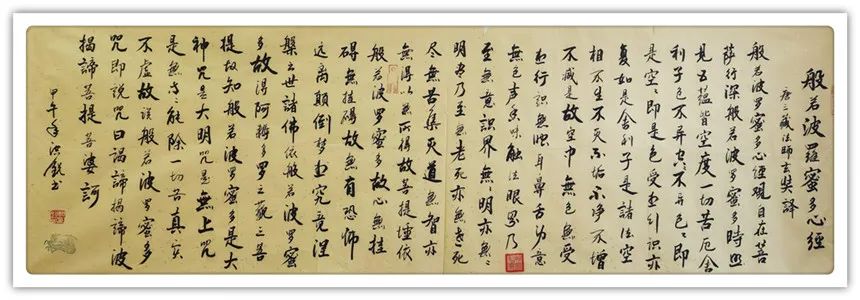 般若波羅蜜多心經
唐三藏法師玄奘譯
般若波罗蜜多心經觀自在菩
薩行深般若波罗蜜多時照
見五蘊皆空度一切苦厄舍
利子色不异空々不异色々即
是空々即是色受想行識亦
复如是舍利子是諸法空
相不生不灭不垢不净不增
不减是故空中無色無受
想行識無眼耳鼻舌身意
無色声香味觸法眼界乃
至無意識界無々明亦無々
明尽乃至無老死亦無老死
尽無苦集灭道無智亦
無得以無所得故菩提埵依
般若波罗蜜多故心無挂
碍無挂碍故無有恐怖
远离顛倒梦想究竟涅
槃三世諸佛依般若波罗蜜
多故得阿耨多罗三藐三菩
提故知般若波罗蜜多是大
神咒是大明咒是無上咒
是無等々能除一切苦真实
不虚故说般若波罗蜜多
咒即说咒曰揭諦揭諦波
揭諦菩提菩婆訶
甲午年洪銳书